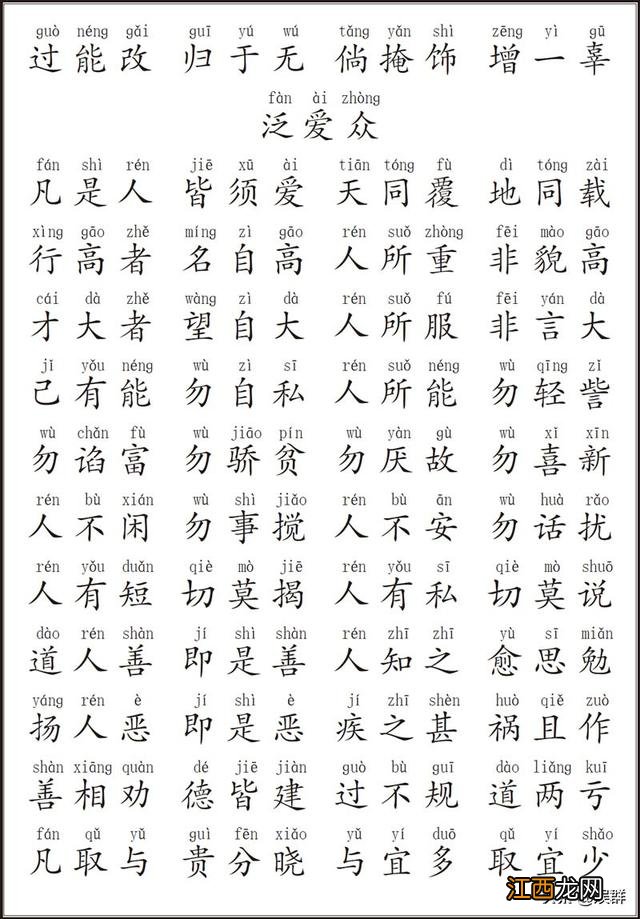 guò néng gǎi guī yú wú tǎng yǎn shì zēng yì gū
过能改 归于无 倘掩饰 增一辜
fàn ài zhòng
泛爱众
fán shì rén jiē xū ài tiān tóng fù dì tóng zài
凡是人 皆须爱 天同覆 地同载
xìng gāo zhě míng zì gāo rén suǒ zhòng fēi mào gāo
行高者 名自高 人所重 非貌高
cái dà zhě wàng zì dà rén suǒ fú fēi yán dà
才大者 望自大 人所服 非言大
jǐ yǒu néng wù zì sī rén suǒ néng wù qīng zǐ
己有能 勿自私 人所能 勿轻訾
wù chǎn fù wù jiāo pín wù yàn gù wù xǐ xīn
勿谄富 勿骄贫 勿厌故 勿喜新
rén bù xián wù shì jiǎo rén bù ān wù huà rǎo
人不闲 勿事搅 人不安 勿话扰
rén yǒu duǎn qiè mò jiē rén yǒu sī qiè mò shuō
人有短 切莫揭 人有私 切莫说
dào rén shàn jí shì shàn rén zhī zhī yù sī miǎn
道人善 即是善 人知之 愈思勉
yáng rén è jí shì è jí zhī shèn huò qiě zuò
扬人恶 即是恶 疾之甚 祸且作
shàn xiāng quàn dé jiē jiàn guò bù guī dào liǎng kuī
善相劝 德皆建 过不规 道两亏
fán qǔ yǔ guì fēn xiǎo yǔ yí duō qǔ yí shǎo
凡取与 贵分晓 与宜多 取宜少
江西龙网